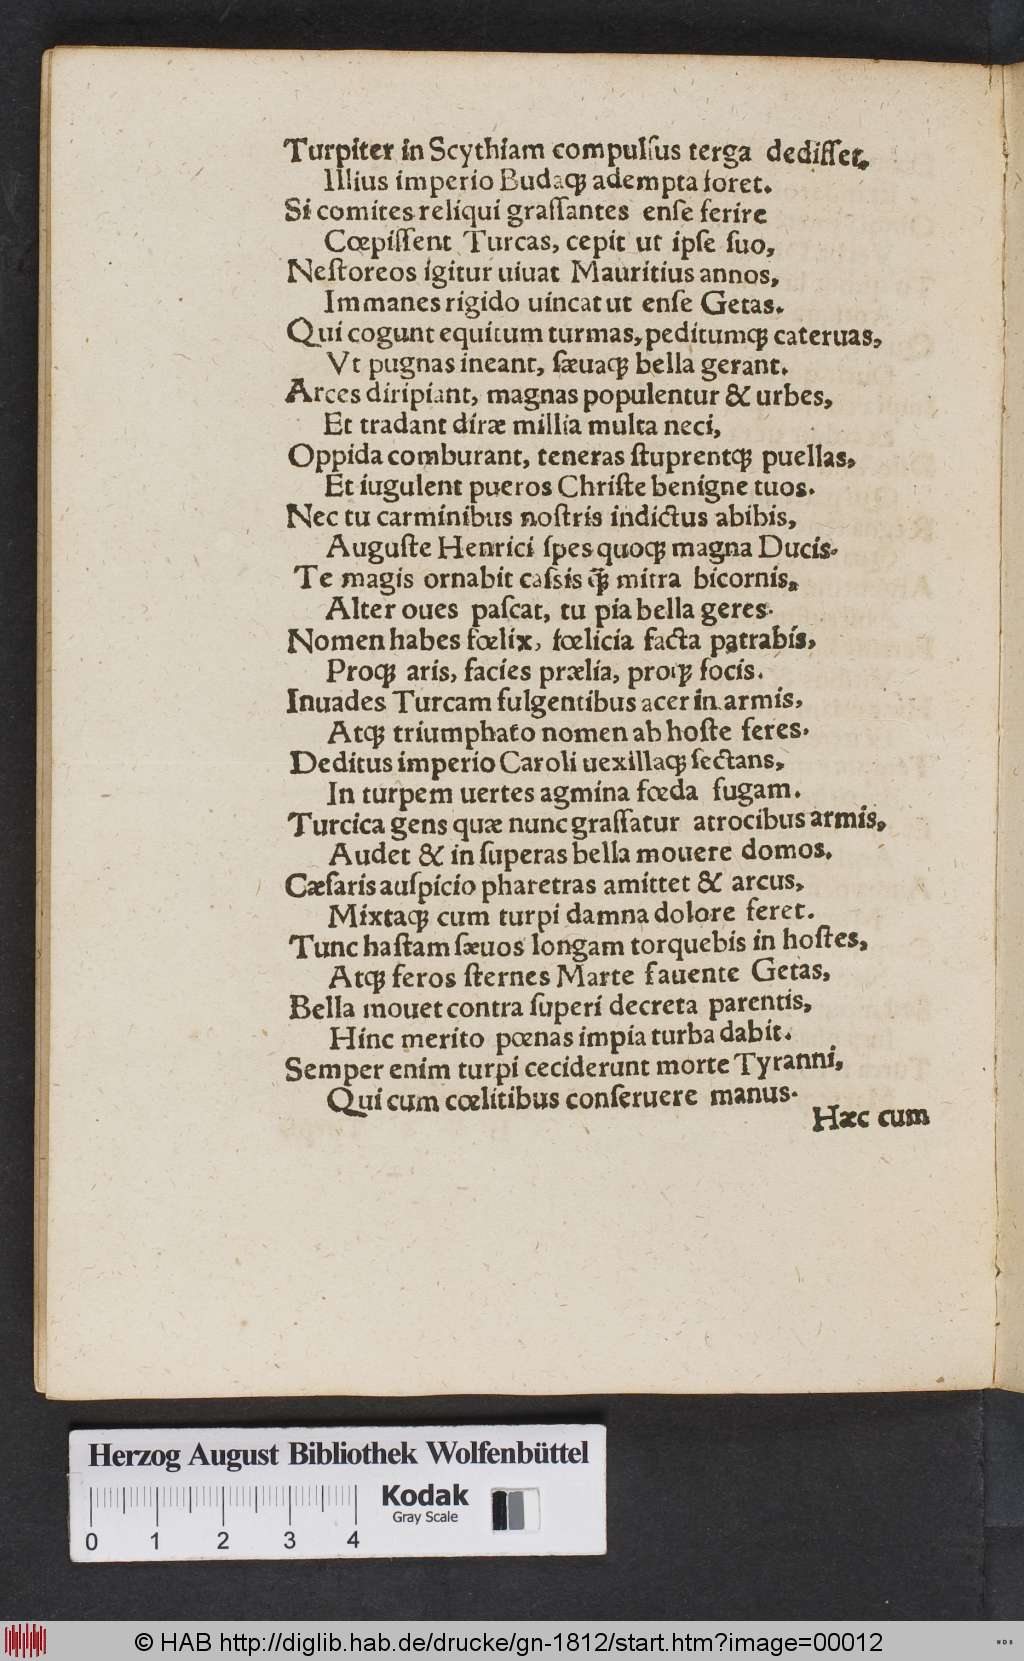 Turpiter in Scythiam compulſus terga dediſſet,
Illius imperio Budaꝗ adempta foret.
Si comites reliqui graſſantes enſe ferire
Cœpiſſent Turcas, cepit ut ipſe ſuo,
Neſtoreos igitur uiuat Mauritius annos,
Immanes rigido uincat ut enſe Getas.
Qui cogunt equitum turmas, peditumꝗ cateruas,
Vt pugnas ineant, ſæuaꝗ bella gerant.
Arces diripiant, magnas populentur & urbes,
Et tradant diræ millia multa neci,
Oppida comburant, teneras ſtuprentꝗ puellas,
Et iugulent pueros Chriſte benigne tuos.
Nec tu carminibus noſtris indictus abibis,
Auguſte Henrici ſpes quoꝗ magna Ducis.
Te magis ornabit caſsis ꝗ̃ mitra bicornis,
Alter oues paſcat, tu pia bella geres.
Nomen habes fœlix, fœlicia facta patrabis,
Proꝗ aris, facies prælia, proꝗ focis.
Inuades Turcam fulgentibus acer in armis,
Atꝗ triumphato nomen ab hoſte feres.
Deditus imperio Caroli uexillaꝗ ſectans,
In turpem uertes agmina fœda fugam.
Turcica gens quæ nunc graſſatur atrocibus armis,
Audet & in ſuperas bella mouere domos.
Cæſaris auſpicio pharetras amittet & arcus,
Mixtaꝗ cum turpi damna dolore feret.
Tunc haſtam ſæuos longam torquebis in hoſtes,
Atꝗ feros ſternes Marte fauente Getas,
Bella mouet contra ſuperi decreta parentis,
Hinc merito pœnas impia turba dabit.
Semper enim turpi ceciderunt morte Tyranni,
Qui cum cœlitibus conſeruere manus.
Hæc cum
Herzog August Bibliothek Wolfenbüttel
Kodak
Gray Scale
0 1 2 3 4
© HAB http://diglib.hab.de/drucke/gn-1812/start.htm?image=00012